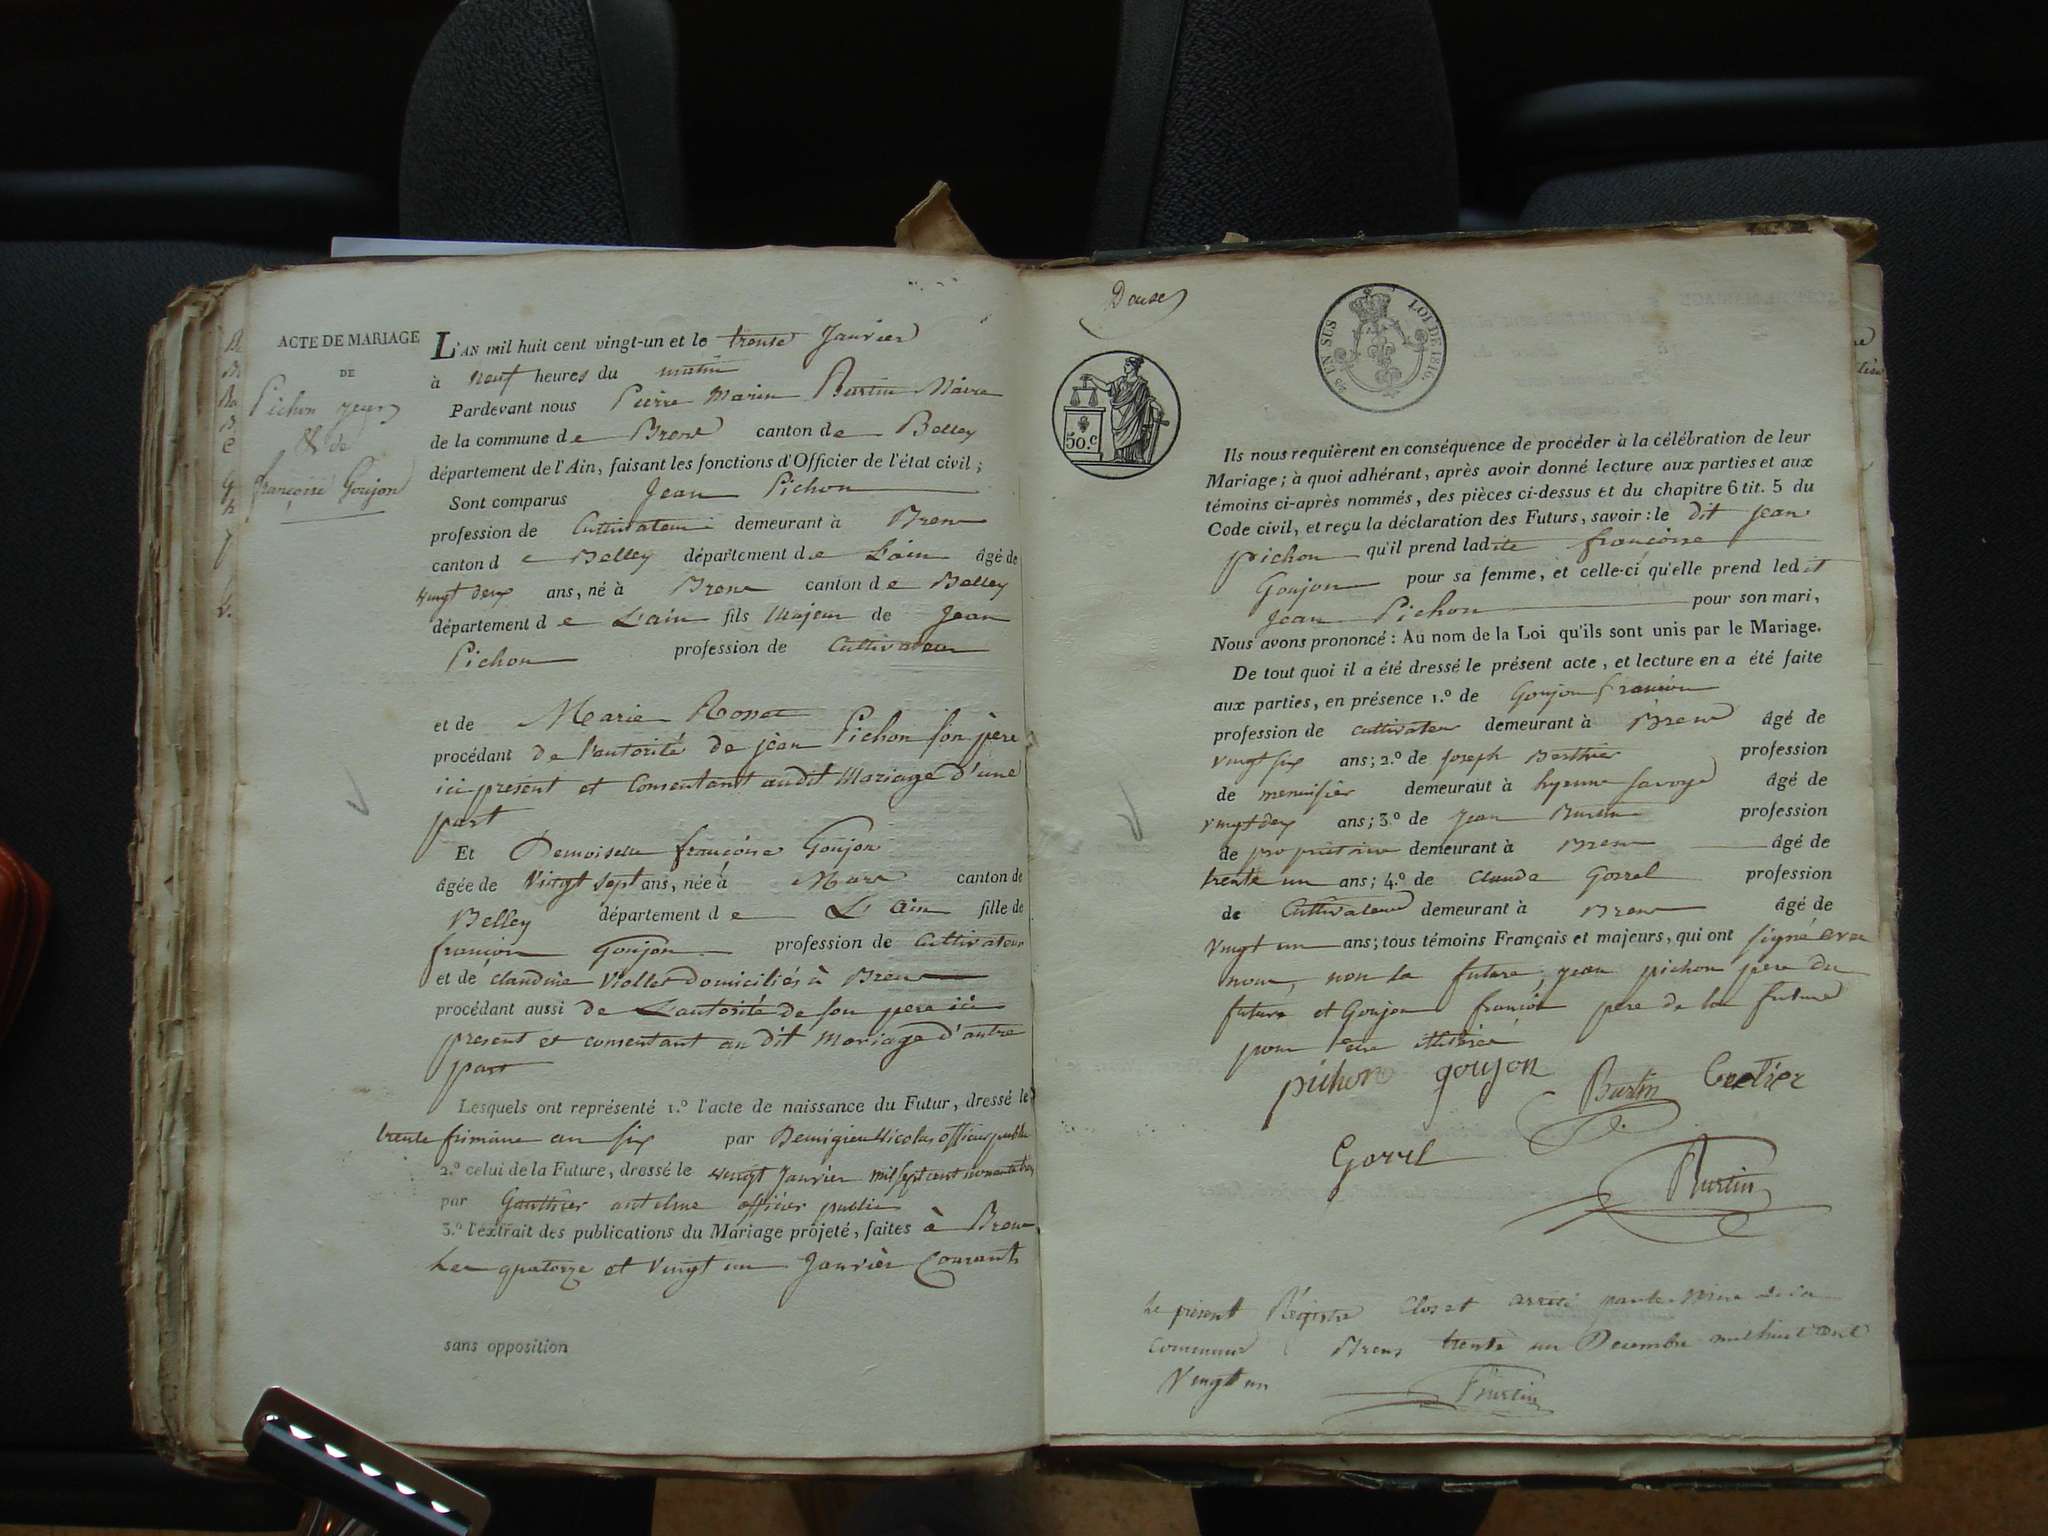 ACTE DE MARIAGE
DE
Pichon jean
& de
françoise Goujon
L'AN mil huit cent vingt-un et le trente Janvier
à neuf heures du matin
Pardevant nous Pierre Marin Burtin Maire
de la commune de Brens canton de Belley
département de l'Ain, faisant les fonctions d'Officier de l'état civil;
Sont comparus Jean Pichon
profession de Cultivateur demeurant à Brens
canton de Belley département de L'ain âgé de
vingt deux ans, né à Brens canton de Belley
département de L'ain fils Majeur de Jean
Pichon profession de Cultivateur
et de Marie Rosset
procédant de l'autorité de jèan Pichon son père
ici présent et Consentant audit Mariage d'une
part
Et Demoiselle françoise Goujon
âgée de Vingt sept ans, née à canton de
Belley département de L'Ain fille de
françois Goujon profession de Cultivateur
et de Claudine Viollet domiciliés à Brens
procédant aussi de L'autorité de son pere ici
present et consentant au dit Mariage d'autre
part
Lesquels ont représenté 1.º l'acte de naissance du Futur, dressé le
trente frimaire an six par Nicolas officier public
2.º celui de la Future, dressé le vingt Janvier mil sept cent nonante
par Gauthier antelme officier public
3.º l'extrait des publications du Mariage projeté, faites à Brens
Les quatorze et Vingt un Janvier Courants
sans opposition
Douse
EN SUS LOI DE 1816.
50.c
Ils nous requièrent en conséquence de procéder à la célébration de leur
Mariage; à quoi adhérant, après avoir donné lecture aux parties et aux
témoins ci-après nommés, des pièces ci-dessus et du chapitre 6 tit. 5 du
Code civil, et reçu la déclaration des Futurs, savoir: le dit jean
pichon qu'il prend ladite françoise
Goujon pour sa femme, et celle-ci qu'elle prend ledit
Jean Pichon pour son mari,
Nous avons prononcé: Au nom de la Loi qu'ils sont unis par le Mariage.
De tout quoi il a été dressé le présent acte, et lecture en a été faite
aux parties, en présence 1.º de Goujon françois
profession de cultivateur demeurant à Brens âgé de
vingt six ans; 2.º de joseph Berthier profession
de menuisier demeurant à hyenne savoye âgé de
vingt deux ans; 3.º de jean Burtin profession
de propriétaire demeurant à Brens âgé de
trente un ans; 4.º de Claude Gorrel profession
de Cultivateur demeurant à Brens âgé de
Vingt un ans; tous témoins Français et majeurs, qui ont signé avec
nous, non la future, jean pichon pere du
future et Goujon francois pere de la future
pour être illiteré
pichon goujon Burtin
Gorrel Burtin
Le présent Régistre Clos et arreté par le Maire de la
Commune Brens trente un Decembre mil huit cent
Vingt un
Burtin